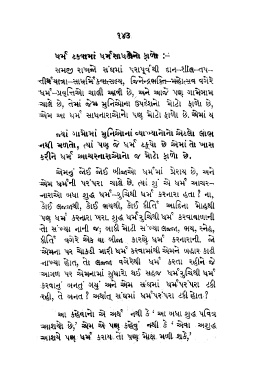 ૧૪૩
ધર્મ ટકવામાં ધર્મસાધકોનો ફાળો :-
સમજી રાખજો સંઘમાં પરાપૂર્વથી દાન-શીલ-તપ-
તીર્થયાત્રા-સાધર્મિકવાત્સલ્ય, જિનેન્દ્રભક્તિ-મહોત્સવ વગેરે
ધર્મ-પ્રવૃત્તિઓ ચાલી આવી છે, અને આજે પણ ગામોગામ
ચાલે છે, તેમાં જેમ મુનિઓના ઉપદેશનો મોટો ફાળો છે,
એમ આ ધર્મ સાધનારાઓનો પણ મોટો ફાળો છે. એમાં ય
જ્યાં ગામોમાં મુનિઓનાં વ્યાખ્યાનોનો એટલો લાભ
નથી મળતો, ત્યાં પણ જે ધર્મ ટક્યો છે એમાં તો ખાસ
કરીને ધર્મ આચરનારાઓનો જ મોટો ફાળો છે.
એમનું જોઈ જોઈ બીજાઓ ધર્મમાં પ્રેરાય છે, અને
એમ ધર્મની પરંપરા ચાલે છે. ત્યાં શું એ ધર્મ આચર-
નારાઓ બધા શુદ્ધ ધર્મ-રુચિથી ધર્મ કરનારા હતા? ના,
કોઈ લજ્જાથી, કોઈ ભયથી, કોઈ કીર્તિ આદિના મોહથી
પણ ધર્મ કરનારા ખરા. શુદ્ધ ધર્મરુચિથી ધર્મ કરવાવાળાની
તો સંખ્યા નાની જ; બાકી મોટી સંખ્યા લજ્જા, ભય, સ્નેહ,
કીર્તિ વગેરે એક યા બીજા કારણે ધર્મ કરનારાની. જો
એમના પર ચોકડી મારી ધર્મ કરવામાંથી એમને બહાર કાઢી
નાખ્યા હોત, તો લજ્જા વગેરેથી ધર્મ કરતા રહીને જે
આગળ પર એમનામાં સુધારો થઈ સહજ ધર્મરુચિથી ધર્મ
કરવાનું બનતું ગયું અને એમ સંઘમાં ધર્મપરંપરા ટકી
રહી, તે બનત? અર્થાત્ સંઘમાં ધર્મપરંપરા ટકી હોત?
આ કહેવાનો એ અર્થ નથી કે 'આ બધા શુદ્ધ પવિત્ર
આશયો છે,' એમ એ પણ કહેવું નથી કે 'એવા અશુદ્ધ
આશયે પણ ધર્મ કરાય તો પણ મોક્ષ મળી શકે,'